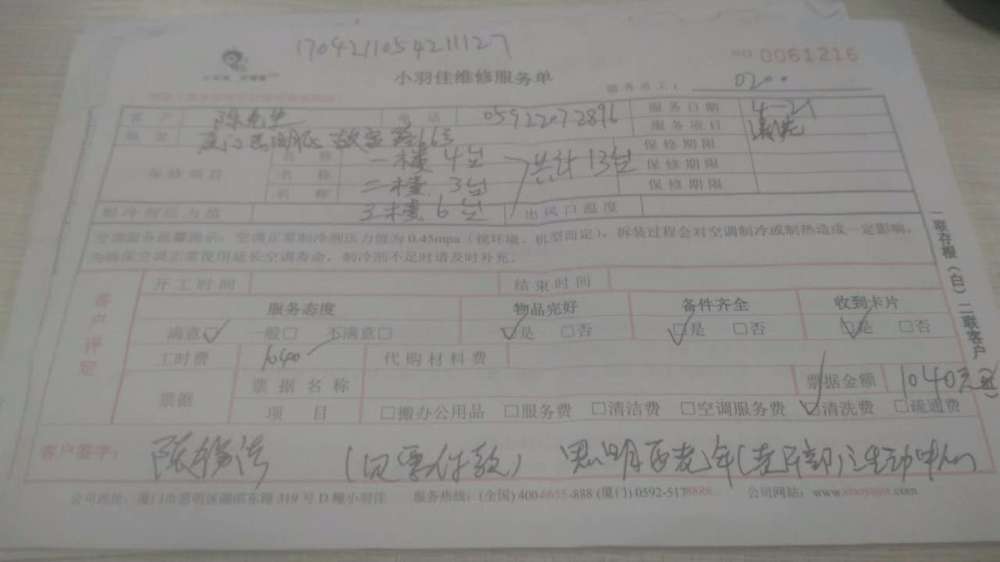 170421105421127
NO 0061216
小羽佳维修服务单
服务员工: 0200
客户 电话 05922072896 服务日期 4-21
地址 服务项目 清洗
保修项目 名称 一楼4台 共计13台 保修期限
名称 二楼3台 保修期限
名称 3楼6台 保修期限
制冷剂压力值 出风口温度
空调正常制冷剂压力值为0.45mpa(视环境、机型而定),拆装过程会对空调制冷或制热造成一定影响,
为确保空调正常使用延长空调寿命,制冷剂不足时请及时补充。
开工时间 结束时间
客户评定 服务态度 物品完好 备件齐全 收到卡片
满意□ 一般□ 不满意□ □是 □否 □是 □否 □是 □否
工时费 1040 代购材料费
票据 票据名称 票据金额 1040元
项目 □搬办公用品 □服务费 □清洁费 □空调服务费 □清洗费 □疏通费
客户签字: 陈 (见票付款)
公司地址: 厦门市思明区湖滨东路319号D幢小羽佳 服务热线: (全国) 400-6655-888 (厦门) 0592-5178888 公司网站: www.xiaoyujia.com
一联存根(白)二联客户